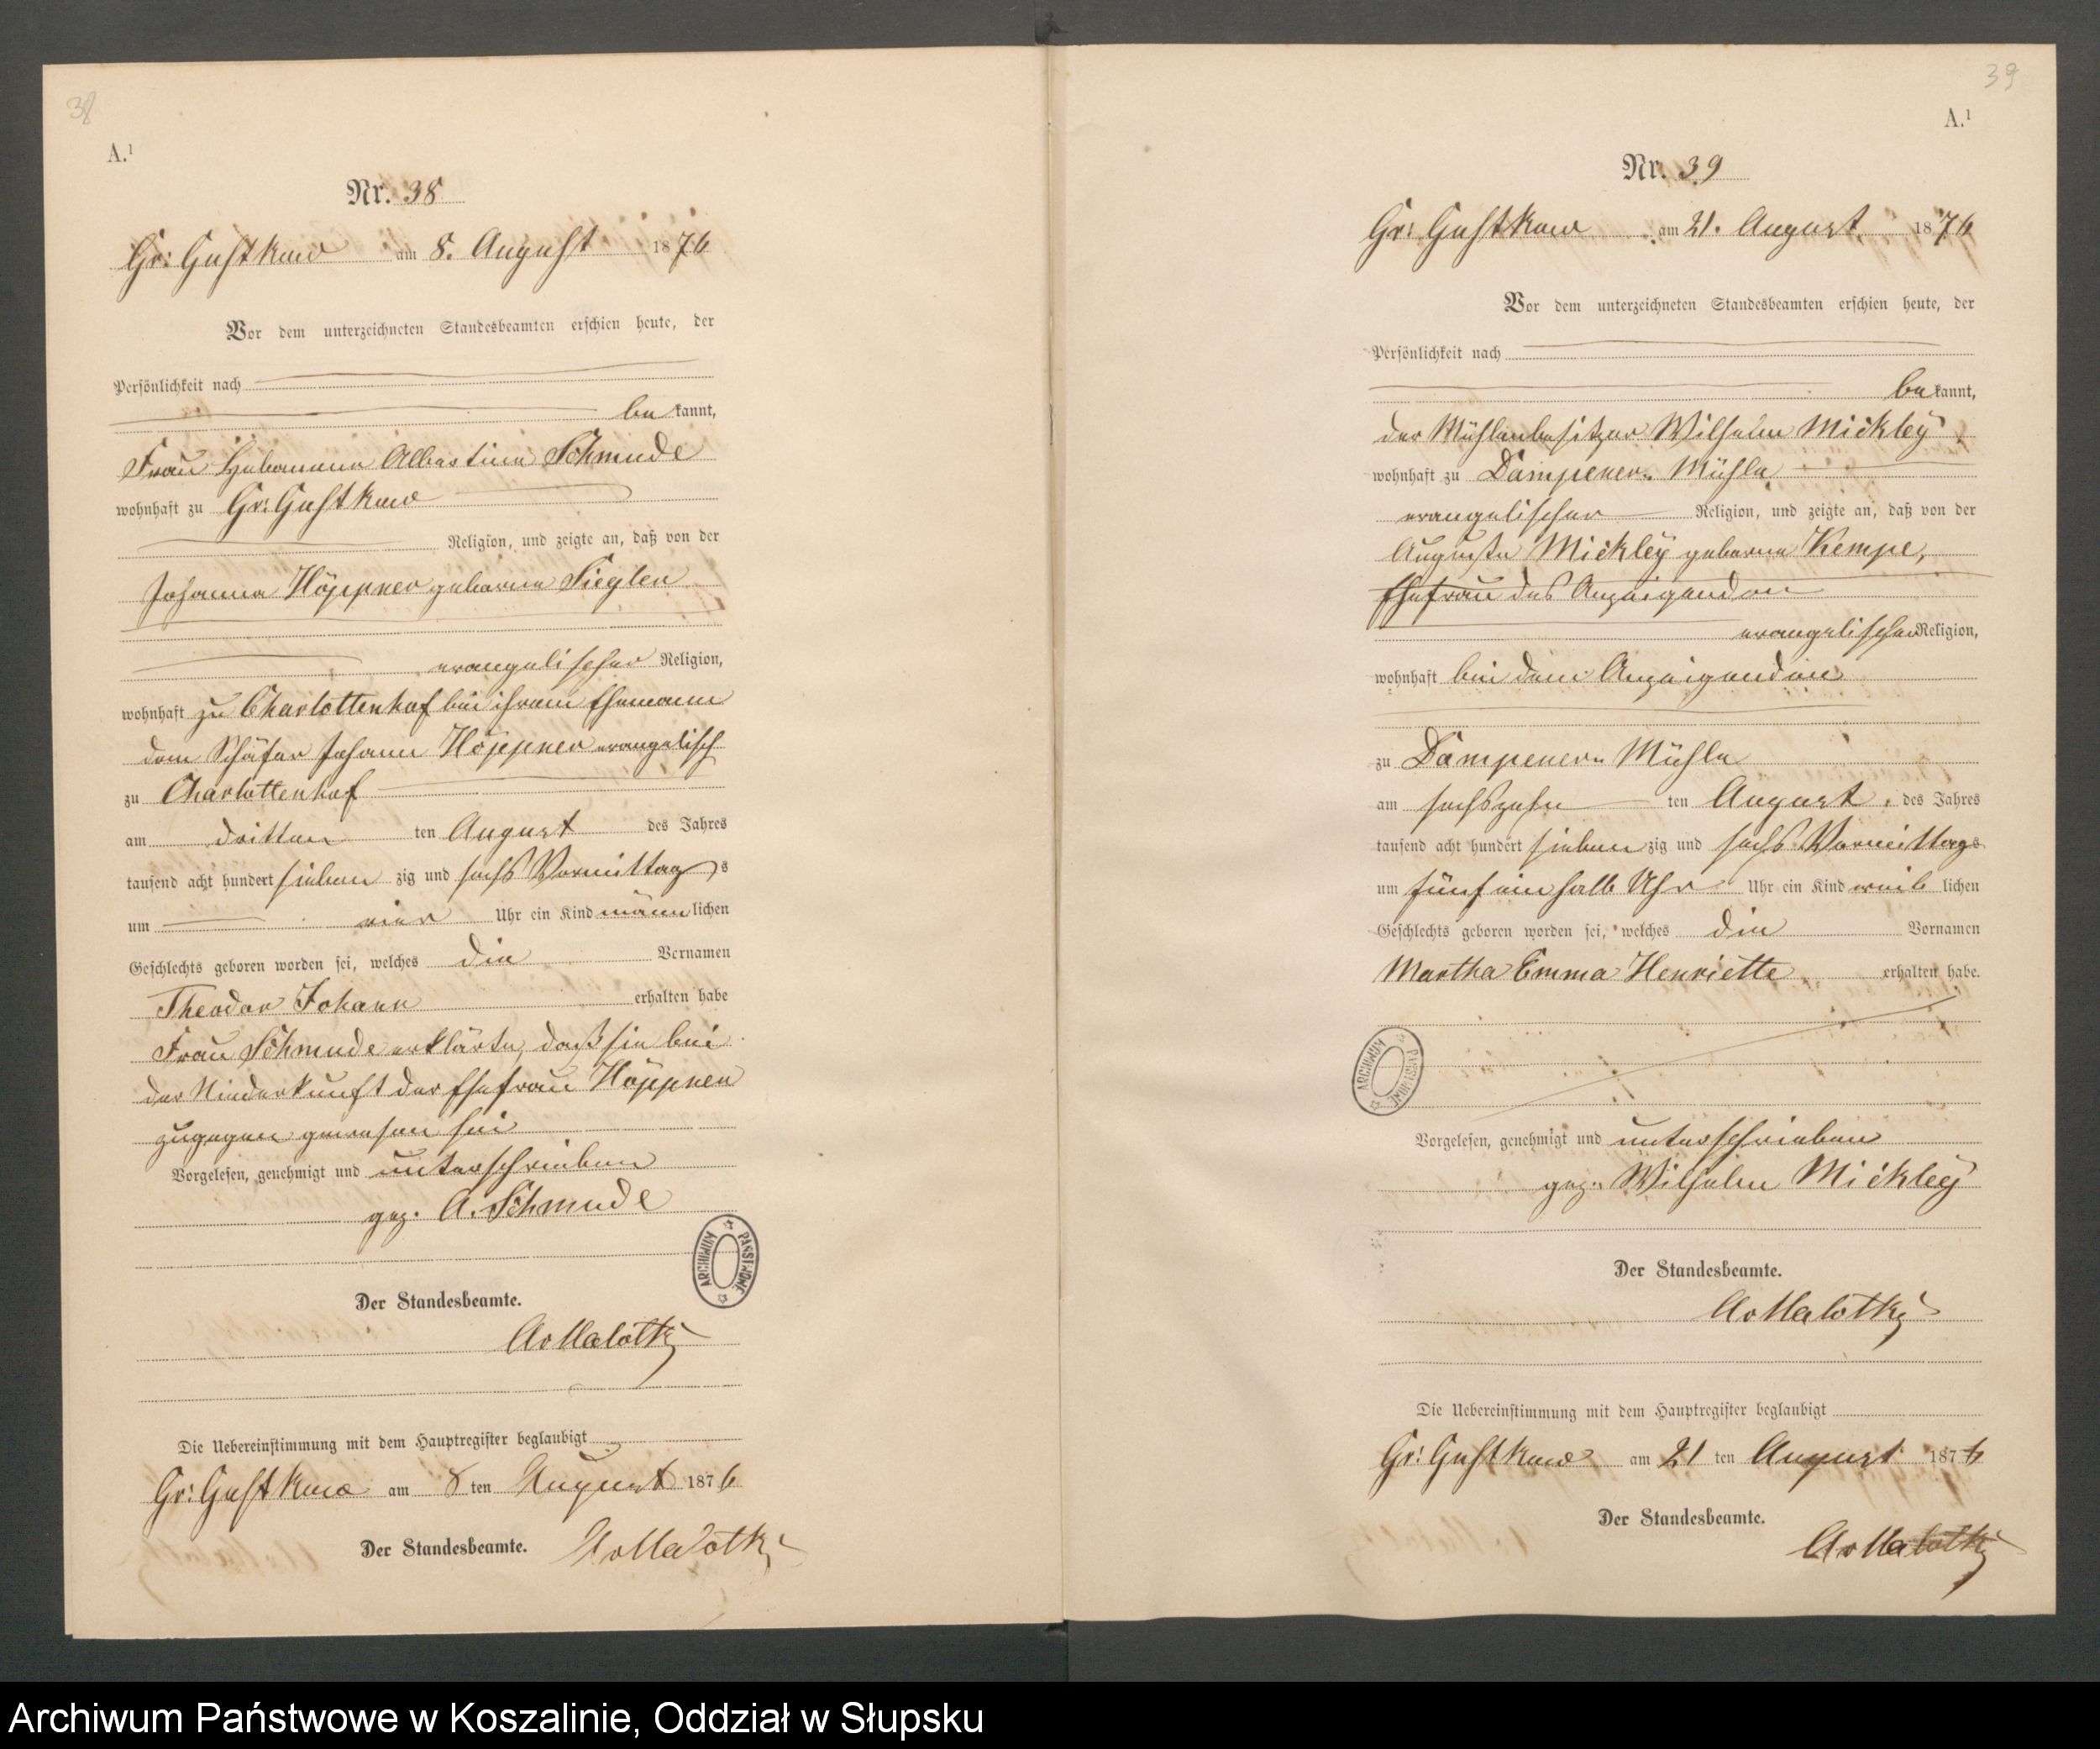 38
A.¹
Nr. 38
Gr: Gustkow am 8. August 1876
Vor dem unterzeichneten Standesbeamten erschien heute, der
Persönlichkeit nach
be kannt,
Frau Hebamme Albertine Schmude
wohnhaft zu Gr: Gustkow
Religion, und zeigte an, daß von der
Johanna Höppner geborne Siegler
evangelischer Religion,
wohnhaft zu Charlottenhof bei ihrem Ehemann
dem Schäfer Johann Höppner evangelisch
zu Charlottenhof
am dritten ten August des Jahres
tausend acht hundert sieben zig und sechs Vormittag s
um vier Uhr ein Kind männ lichen
Geschlechts geboren worden sei, welches die Vornamen
Theodor Johann erhalten habe
Frau Schmude erklärte, daß sie bei
der Niederkunft der Ehefrau Höppner
zugegen gewesen sei
Vorgelesen, genehmigt und unterschrieben
gez. A. Schmude
ARCHIWUM PAŃSTWOWE
Der Standesbeamte.
AvMalotki
Die Uebereinstimmung mit dem Hauptregister beglaubigt
Gr: Gustkow am 8 ten August 1876
Der Standesbeamte. AvMalotki
39
A.¹
Nr. 39
Gr: Gustkow am 21. August 1876
Vor dem unterzeichneten Standesbeamten erschien heute, der
Persönlichkeit nach
be kannt,
der Mühlenbesitzer Wilhelm Mickley
wohnhaft zu Dampener Mühle
evangelischer Religion, und zeigte an, daß von der
Auguste Mickley geborne Kempe,
Ehefrau des Anzeigenden
evangelischer Religion,
wohnhaft bei dem Anzeigenden
zu Dampener Mühle
am sechszehn ten August des Jahres
tausend acht hundert sieben zig und sechs Vormittags
um fünf ein halb Uhr Uhr ein Kind weib lichen
Geschlechts geboren worden sei, welches die Vornamen
Martha Emma Henriette erhalten habe.
ARCHIWUM PAŃSTWOWE
Vorgelesen, genehmigt und unterschrieben
gez. Wilhelm Mickley
Der Standesbeamte.
AvMalotki
Die Uebereinstimmung mit dem Hauptregister beglaubigt
Gr: Gustkow am 21 ten August 1876
Der Standesbeamte.
AvMalotki
Archiwum Państwowe w Koszalinie, Oddział w Słupsku